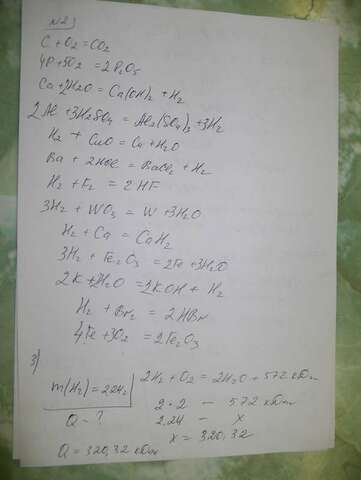 №23
C + O2 = CO2
4P + 5O2 = 2P2O5
Ca + 2H2O = Ca(OH)2 + H2
2Al + 3H2SO4 = Al2(SO4)3 + 3H2
H2 + CuO = Cu + H2O
Ba + 2HCl = BaCl2 + H2
H2 + F2 = 2HF
3H2 + WO3 = W + 3H2O
H2 + Ca = CaH2
3H2 + Fe2O3 = 2Fe + 3H2O
2K + 2H2O = 2KOH + H2
H2 + Br2 = 2HBr
4Fe + 3O2 = 2Fe2O3
3)
m(H2) = 2,24г 2H2 + O2 = 2H2O + 572 кДж
Q - ? 2·2 — 572 кДж
2.24 — x
x = 320,32
Q = 320,32 кДж